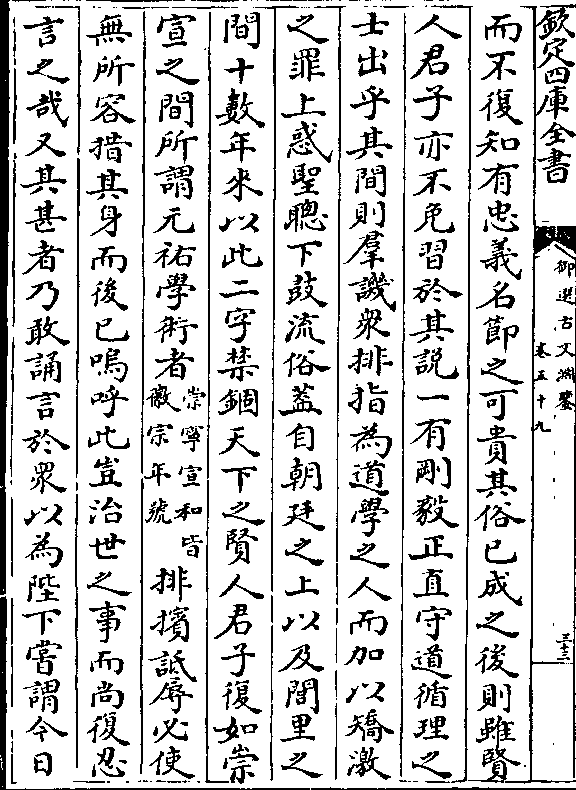 欽定四庫全書
御選古文淵鑒
卷五十九
三十三
而不復知有忠義名節之可貴其俗已成之後則雖賢
人君子亦不免習於其説一有剛毅正直守道循理之
士出乎其間則羣譏衆排指為道學之人而加以矯激
之罪上惑聖聰下鼓流俗盖自朝廷之上以及閭里之
間十數年來以此二字禁錮天下之賢人君子復如崇
宣之間所謂元祐學術者崇寧宣和皆徽宗年號排擯詆辱必使
無所容措其身而後已嗚呼此豈治世之事而尚復忍
言之哉又其甚者乃敢誦言於衆以為陛下嘗謂今日